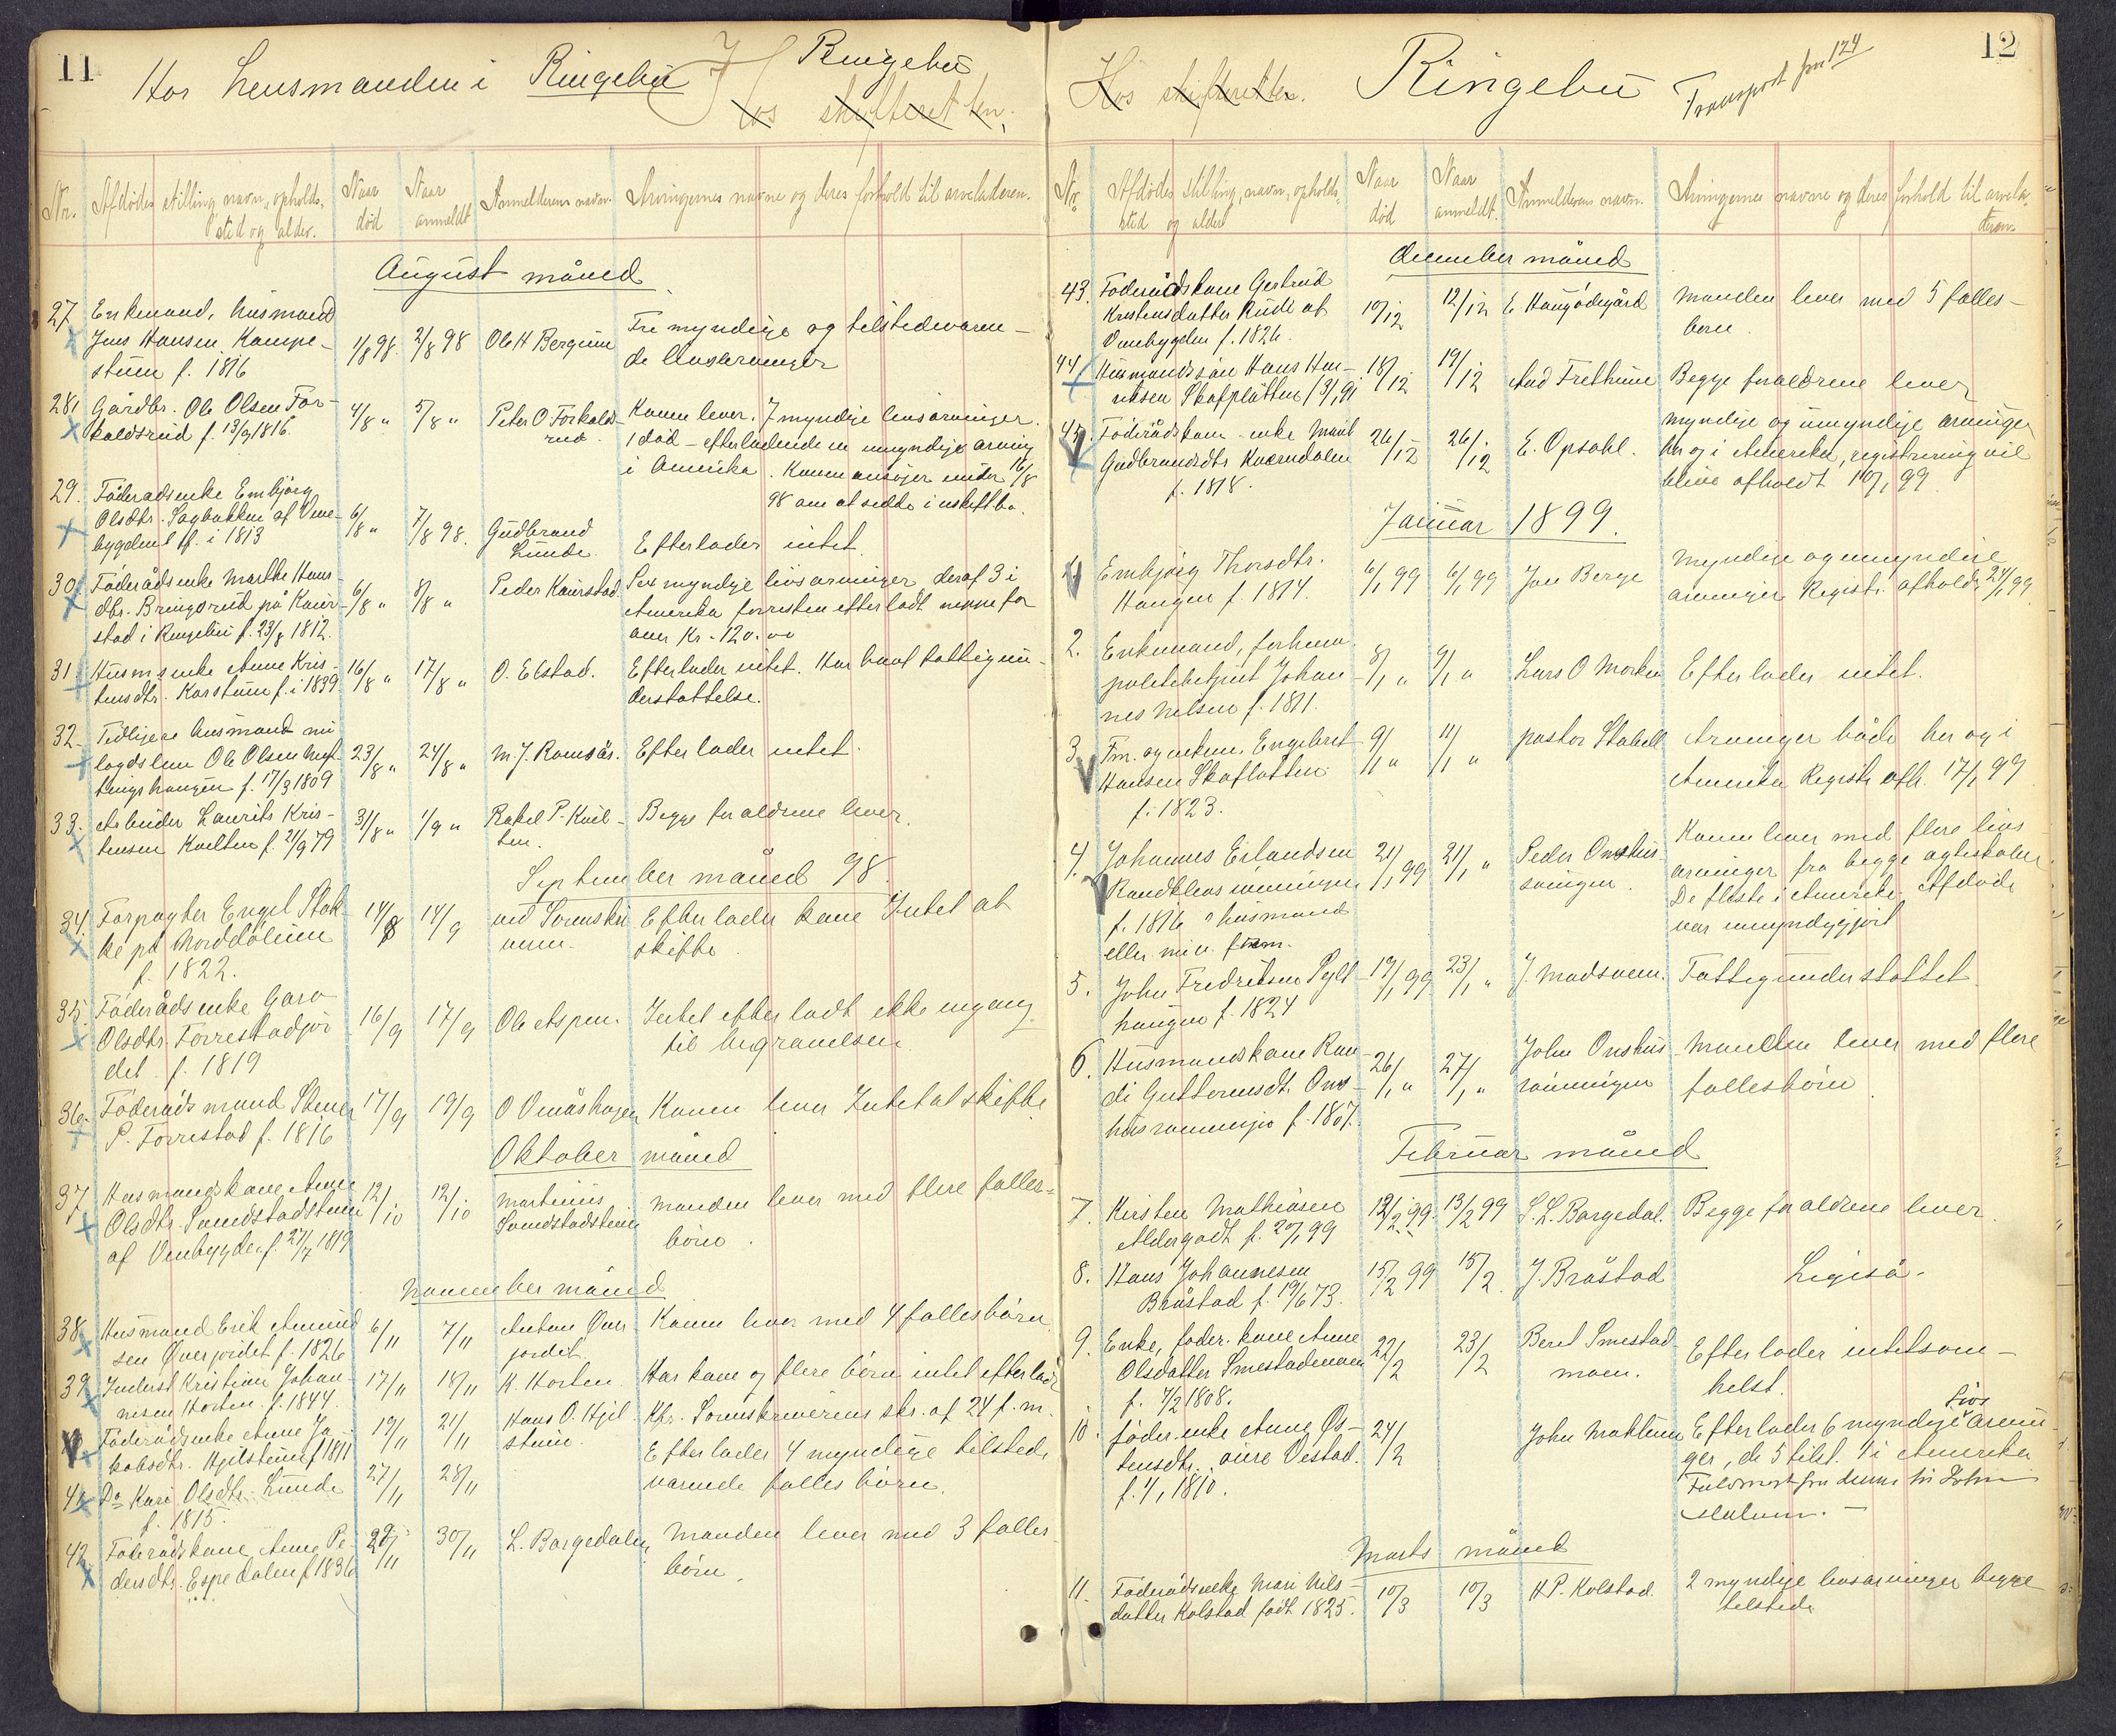 11
Hos Lensmanden i Ringebu
Ringebu
Hos skifteretten.
Nr.
Afdødes stilling, navn, opholds-
sted og alder.
Naar
død
Naar
anmeldt
Anmelderens navn.
Arvingernes navne og deres forhold til arveladeren.
August måned
27
Enkemand, husmand
Jens Hansen Kampe-
stuen f. 1816
1/8 98.
2/8 98
Ole H Bergum
Tre myndige og tilstedeværen-
de livsarvinger
28
Gårdbr. Ole Olsen For-
kaldsrud f. 13/9 1816.
4/8 "
5/8 "
Peter O. Forkalds-
rud.
Konen lever. 7 myndige livsarvinger.
1 død - efterladende en umyndig arving
i Amerika. Konen ansøger under 16/8
98 om at sidde i uskiftbo.
29.
Føderadsenke Embjørg
Olsdtr. Sagbakken af Vene-
bygden f. i 1813
6/8 "
7/8 98.
Gudbrand
Lunde.
Efterlader intet.
30
Føderådsenke Marthe Hans-
dtr. Bringsrud på Kaur-
stad i Ringebu f. 23/8 1812.
6/8 "
8/8 "
Peder Kaurstad.
Sex myndige livsarvinger deraf 3 i
Amerika forresten efterladt neppe for
over Kr. 120.00
31
Husm.enke Anne Kris-
tensdtr. Karstuen f. i 1839
16/8 "
17/8 "
O. Elstad.
Efterlader intet. Har havt fattigun-
derstøttelse.
32.
Tidligere husmand nu
lægdslem Ole Olsen
haugen f. 17/3 1809
23/8 "
24/8 "
M. J. Ramsås.
Efterlader intet.
33.
Arbeider Laurits Kris-
tensen Kvilten f. 21/9 79
31/8 "
1/9 "
Rakel P. Kvil-
ten.
Begge forældrene lever.
September måned 98.
34.
Forpagter Engel Stok-
ke på Norddølum
f. 1822.
14/9
14/9
ved Sorenskri-
veren.
Efterlader kone Intet at
skifte.
35.
Føderådsenke Garo
Olsdtr. Forrestadjor
det f. 1819
16/9
17/9
Ole Aspen.
Intet efterladt ikke engang
til begravelsen.
36.
Føderådsmand Stener
P. Forrestad f. 1816
17/9
19/9
O Venåshagen
Konen lever Intet at skifte
Oktober måned
37
Husmandskone Anne
Olsdtr. Sandstadstuen
af Venbygden f. 27/7 1819
12/10
12/10
Martinus
Sandstadstuen
Manden lever med flere fælles-
børn.
November måned
38.
Husmand Erik Amund
sen Øverjordet f. 1826
6/11
7/11
Anton Øver-
jordet.
Konen lever med 4 fællesbørn.
39
Inderst Kristian Johan-
nesen Horten f. 1844.
17/11
18/11
K. Horten.
Har kone og flere børn intet efterladt
Føderådsenke Anne Ja-
kobsdtr. Hjelstuen f 1811
19/11
21/11
Hans O. Hjel-
stuen.
Kfr. Sorenskriverens skr. af 24 f. m.
Efterlader 4 myndige tilstede
værende fællesbørn.
41
Do Kari Olsdtr. Lunde
f. 1815.
27/11
28/11
42
Føderådskone Anne Pe-
dersdtr. Espedalen f 1836
29/11
30/11
L. Borgedalen
Manden lever med 3 fælles-
børn.
12
Hos skifteretten.
Ringebu
Transport fra 174
Nr.
Afdødes stilling, navn, opholds-
sted og alder
Naar
død
Naar
anmeldt.
Anmelderens navn.
Arvingernes navne og deres forhold til arvela-
deren.
December måned
43.
Føderådskone Gertrud
Kristensdatter Rude af
Venbygden f. 1826.
10/12
12/12
E Haugødegård
Manden lever med 5 fælles-
børn.
44
Husmandssøn Hans Han-
sen Skafplatten 13/91
18/12
19/12
And Frethun
Begge forældrene lever
45.
Føderådskone enke Marit
Gudbrandsdtr Kværndalen
f. 1818.
26/12
26/12
E. Opsahl.
Myndige og umyndige arvinger
her og i Amerika, registrering vil
blive afholdt 10/1 99.
Januar 1899.
1.
Embjørg Thorsdtr.
Haugen f. 1814.
6/1 99
6/1 99
Jon Berge
Myndige og umyndige
arvinger Registr. afholdt 24/1 99
2.
Enkemand, forhenv.
politibetjent Johan-
nes Nelsen f. 1811.
8/1 "
9/1 "
Lars O Morken
Efterlader intet.
3.
Fm. og enkem. Engebret
Hansen Skaflatten
f. 1823.
9/1 "
11/1 "
pastor Stabell
Arvinger både her og i
Amerika Registr. afh. 17/1 99
4.
Johannes Erlandsen
Randklevsvinningen
f. 1816 husmand
eller
21/1 99
21/1 "
Peder Onshus-
svingen.
Konen lever med flere livs
arvinger fra begge ægteskaber.
De fleste i Amerika. Afdøde
var umyndiggjort
5.
John Fredriksen Pylt-
haugen f. 1824
19/1 99
23/1 "
J. Madsveen.
Fattigunderstøttet.
6.
Husmandskone Ran-
di Guttormsdtr. Ons-
husrønningen f. 1807.
26/1 "
27/1 "
John Onshus-
rønningen
Manden lever med flere
fællesbørn.
Februar måned
7.
Kirsten Mathiasen
Aldergodt f. 20/1 99
12/2 99.
13/2 99
S. L. Borgedal.
Begge forældrene lever.
8.
Hans Johannesen
Bråstad f. 19/6 73.
15/2 99
15/2
J. Bråstad
Ligeså.
9.
Enke, føder. kone Anne
Olsdatter Smestadmoen
f. 7/2 1808.
22/2
23/2
Beret Smestad-
moen.
Efterlader intetsom-
helst.
10.
føder.enke Anne Øs-
tensdtr. øvre Vestad.
f. 1/1 1810.
24/2
John
livs
Efterlader 6 myndige arvin-
ger, de 5 tilst. 1 i Amerika
Fuldmagt fra denne til John
Marts måned
11.
Føderådsenke Mari Nils-
datter Kolstad født 1825.
10/3
10/3
H P. Kolstad.
2 myndige livsarvinger begge
tilstede